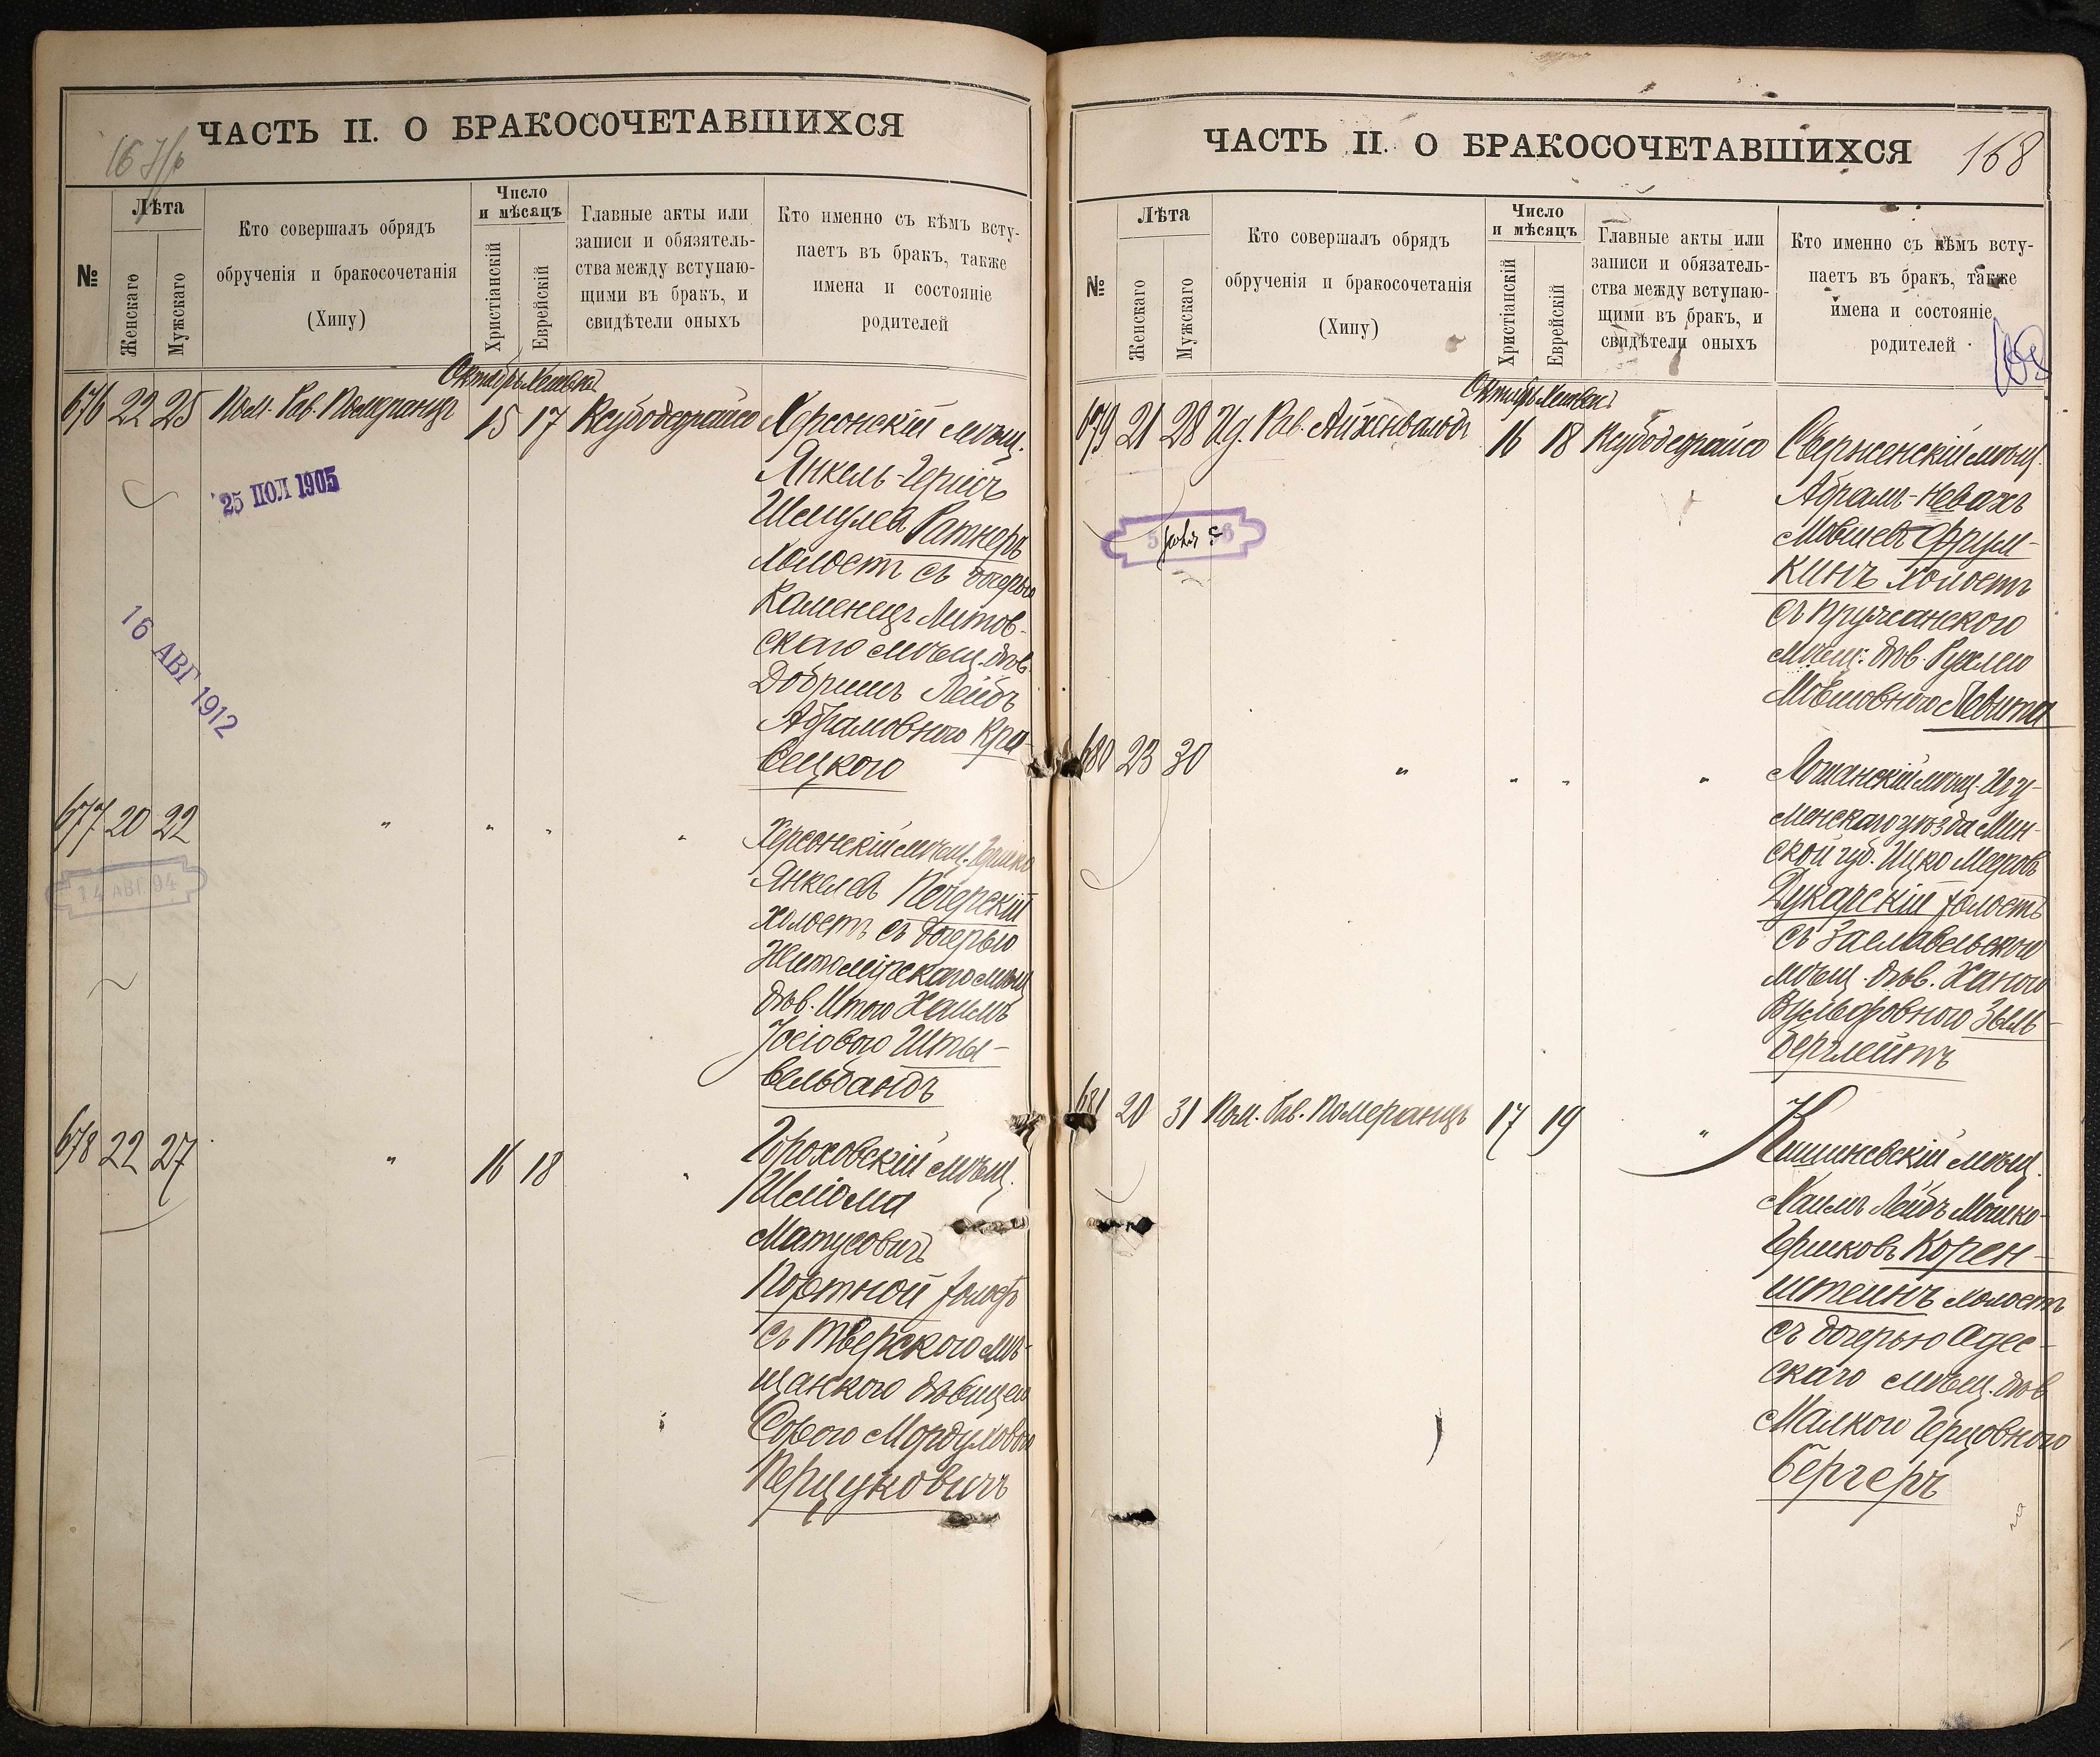 ЧАСТЬ II. О БРАКОСОЧЕТАВШИХСЯ
№
Лѣта
Женскаго
Мужскаго
Кто совершалъ обрядъ
обрученія и бракосочетанія
(Хипу)
Число
и мѣсяцъ
Христіанскій
Еврейскій
Главные акты или
записи и обязатель-
ства между вступаю-
щими въ бракъ, и
свидѣтели оныхъ
Кто именно съ кѣмъ всту-
паетъ въ бракъ, также
имена и состояніе
родителей
676 22 25 Пом. Рав. Померанцъ 15 17 Ксубодеграйсо Херсонскій мѣщ.
Янкель-Гершъ
Шмулевъ Ратнеръ
холостъ съ дочерью
Каменецъ Литов-
скаго мѣщ. дѣв.
Абрамовною Кра-
вецкою
25 ІЮЛ 1905
16 АВГ 1912
677 20 22 " " " " Херсонскій мѣщ. Гершко
Янкелевъ Печерскій
холостъ съ дочерью
Житомірскаго мѣщ
дѣв. Итою Хаимъ
Іосіовою Шты-
вельбандъ
14 АВГ 94
678 22 27 " 16 18 " Гороховскій мѣщ.
Шлiома
Матусовичъ
Портной холостъ
съ Тверскою мѣ-
щанкою дѣвицею
Сорою Мордуховою
Перцуковичъ
ЧАСТЬ II. О БРАКОСОЧЕТАВШИХСЯ 168
№
Лѣта
Женскаго
Мужскаго
Кто совершалъ обрядъ
обрученія и бракосочетанія
(Хипу)
Число
и мѣсяцъ
Христіанскій
Еврейскій
Главные акты или
записи и обязатель-
ства между вступаю-
щими въ бракъ, и
свидѣтели оныхъ
Кто именно съ кѣмъ всту-
паетъ въ бракъ, также
имена и состояніе
родителей
168
679 21 28 Уд. Рав. Айхенвальдъ 16 18 Ксубодеграйсо Сверженскій мѣщ.
Абрамъ-Невахъ
Мовшевъ Фрум-
кинъ холостъ
съ Пружанскою
мѣщ. дѣв. Рухлею
Мовшовною Левита
680 23 30 " " " " Лошанскій мѣщ. Игу-
менскаго уѣзда Мин-
ской губ. Ицко Мееровъ
Дукарскій холостъ
съ Заславльскою
мѣщ. дѣв. Ханою
Вульфовною Зыль-
берглейтъ
681 20 31 Пом. Рав. Померанцъ 17 19 " Кишиневскій мѣщ.
Хаимъ Лейбъ Мошко-
Гершковъ Корен-
штейнъ холостъ
съ дочерью Одес-
скаго мѣщ. дѣв
Малкою Герцовною
Бергеръ